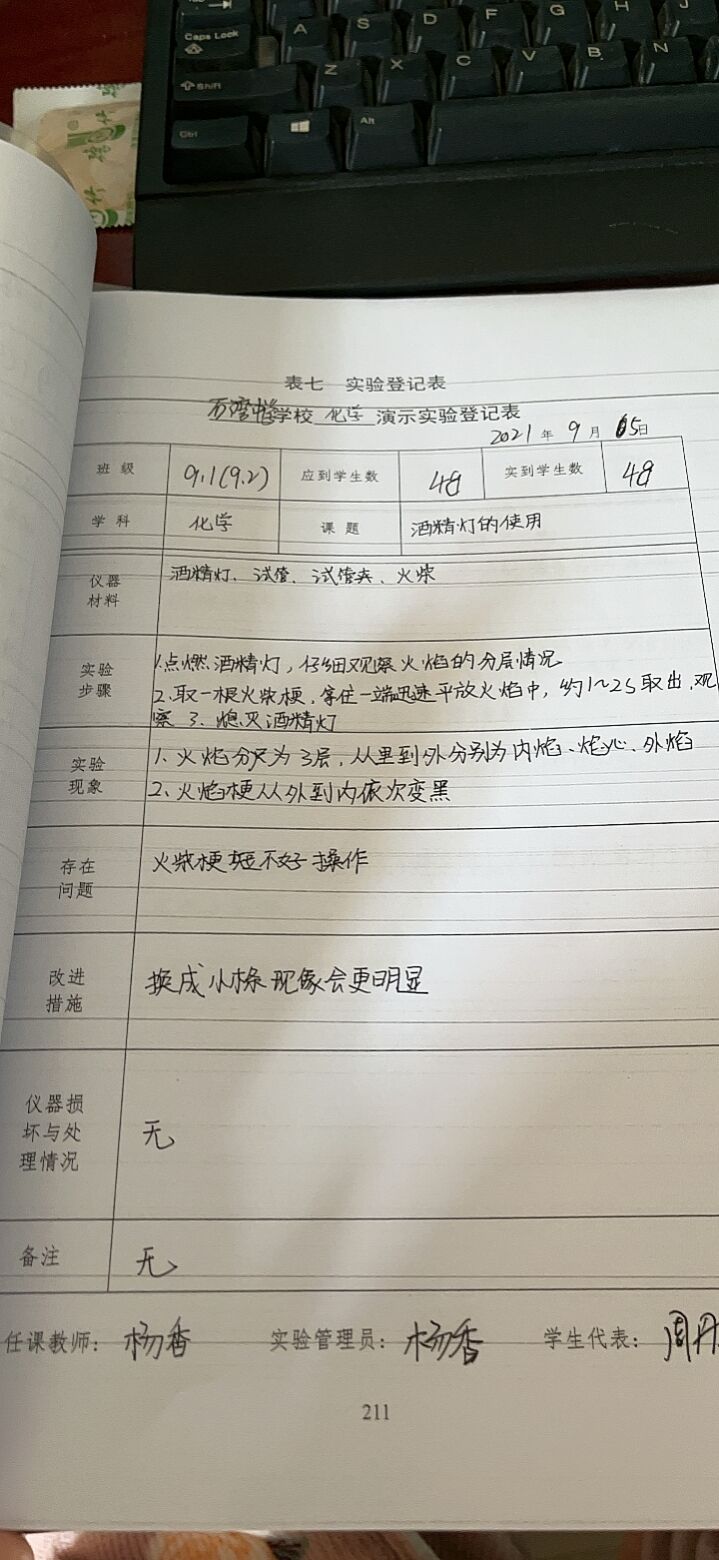 Caps Lock
A S D F G H J
Shift
Z X C V B N
Ctrl
Alt
表七 实验登记表
学校 化学 演示实验登记表
2021 年 9 月 15日
班 级 9.1(9.2) 应到学生数 48 实到学生数 48
学 科 化学 课 题 酒精灯的使用
仪器
材料
酒精灯、试管、试管夹、火柴
实验
步骤
1.点燃酒精灯，仔细观察火焰的分层情况
2.取一根火柴梗，拿住一端迅速平放火焰中，约1~2S取出，观
察 3. 熄灭酒精灯
实验
现象
1、火焰分为3层，从里到外分别为内焰、焰心、外焰
2、火焰梗从外到内依次变黑
存在
问题
火柴梗短不好操作
改进
措施
换成小木条现象会更明显
仪器损
坏与处
理情况
无
备注 无
任课教师： 杨香 实验管理员： 杨香 学生代表： 周丹
211